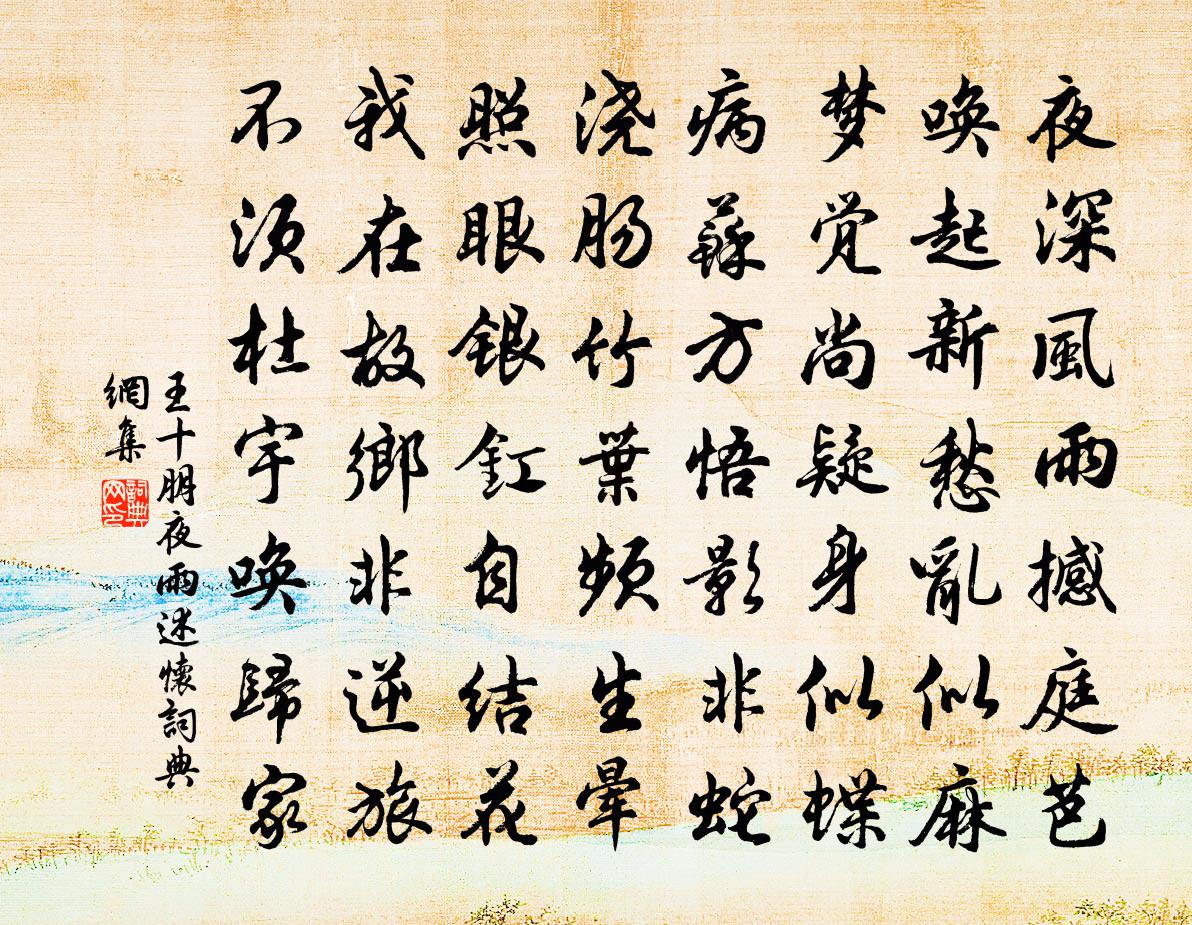 夜深風雨撼庭芭
唤起新愁亂似麻
梦觉尚疑身似蝶
病蘇方悟影非蛇
浇肠竹葉频生暈
照眼銀釭自结花
我在故鄉非逆旅
不须杜宇唤歸家
王十朋夜雨述懷詞典
網集
詞典
网印